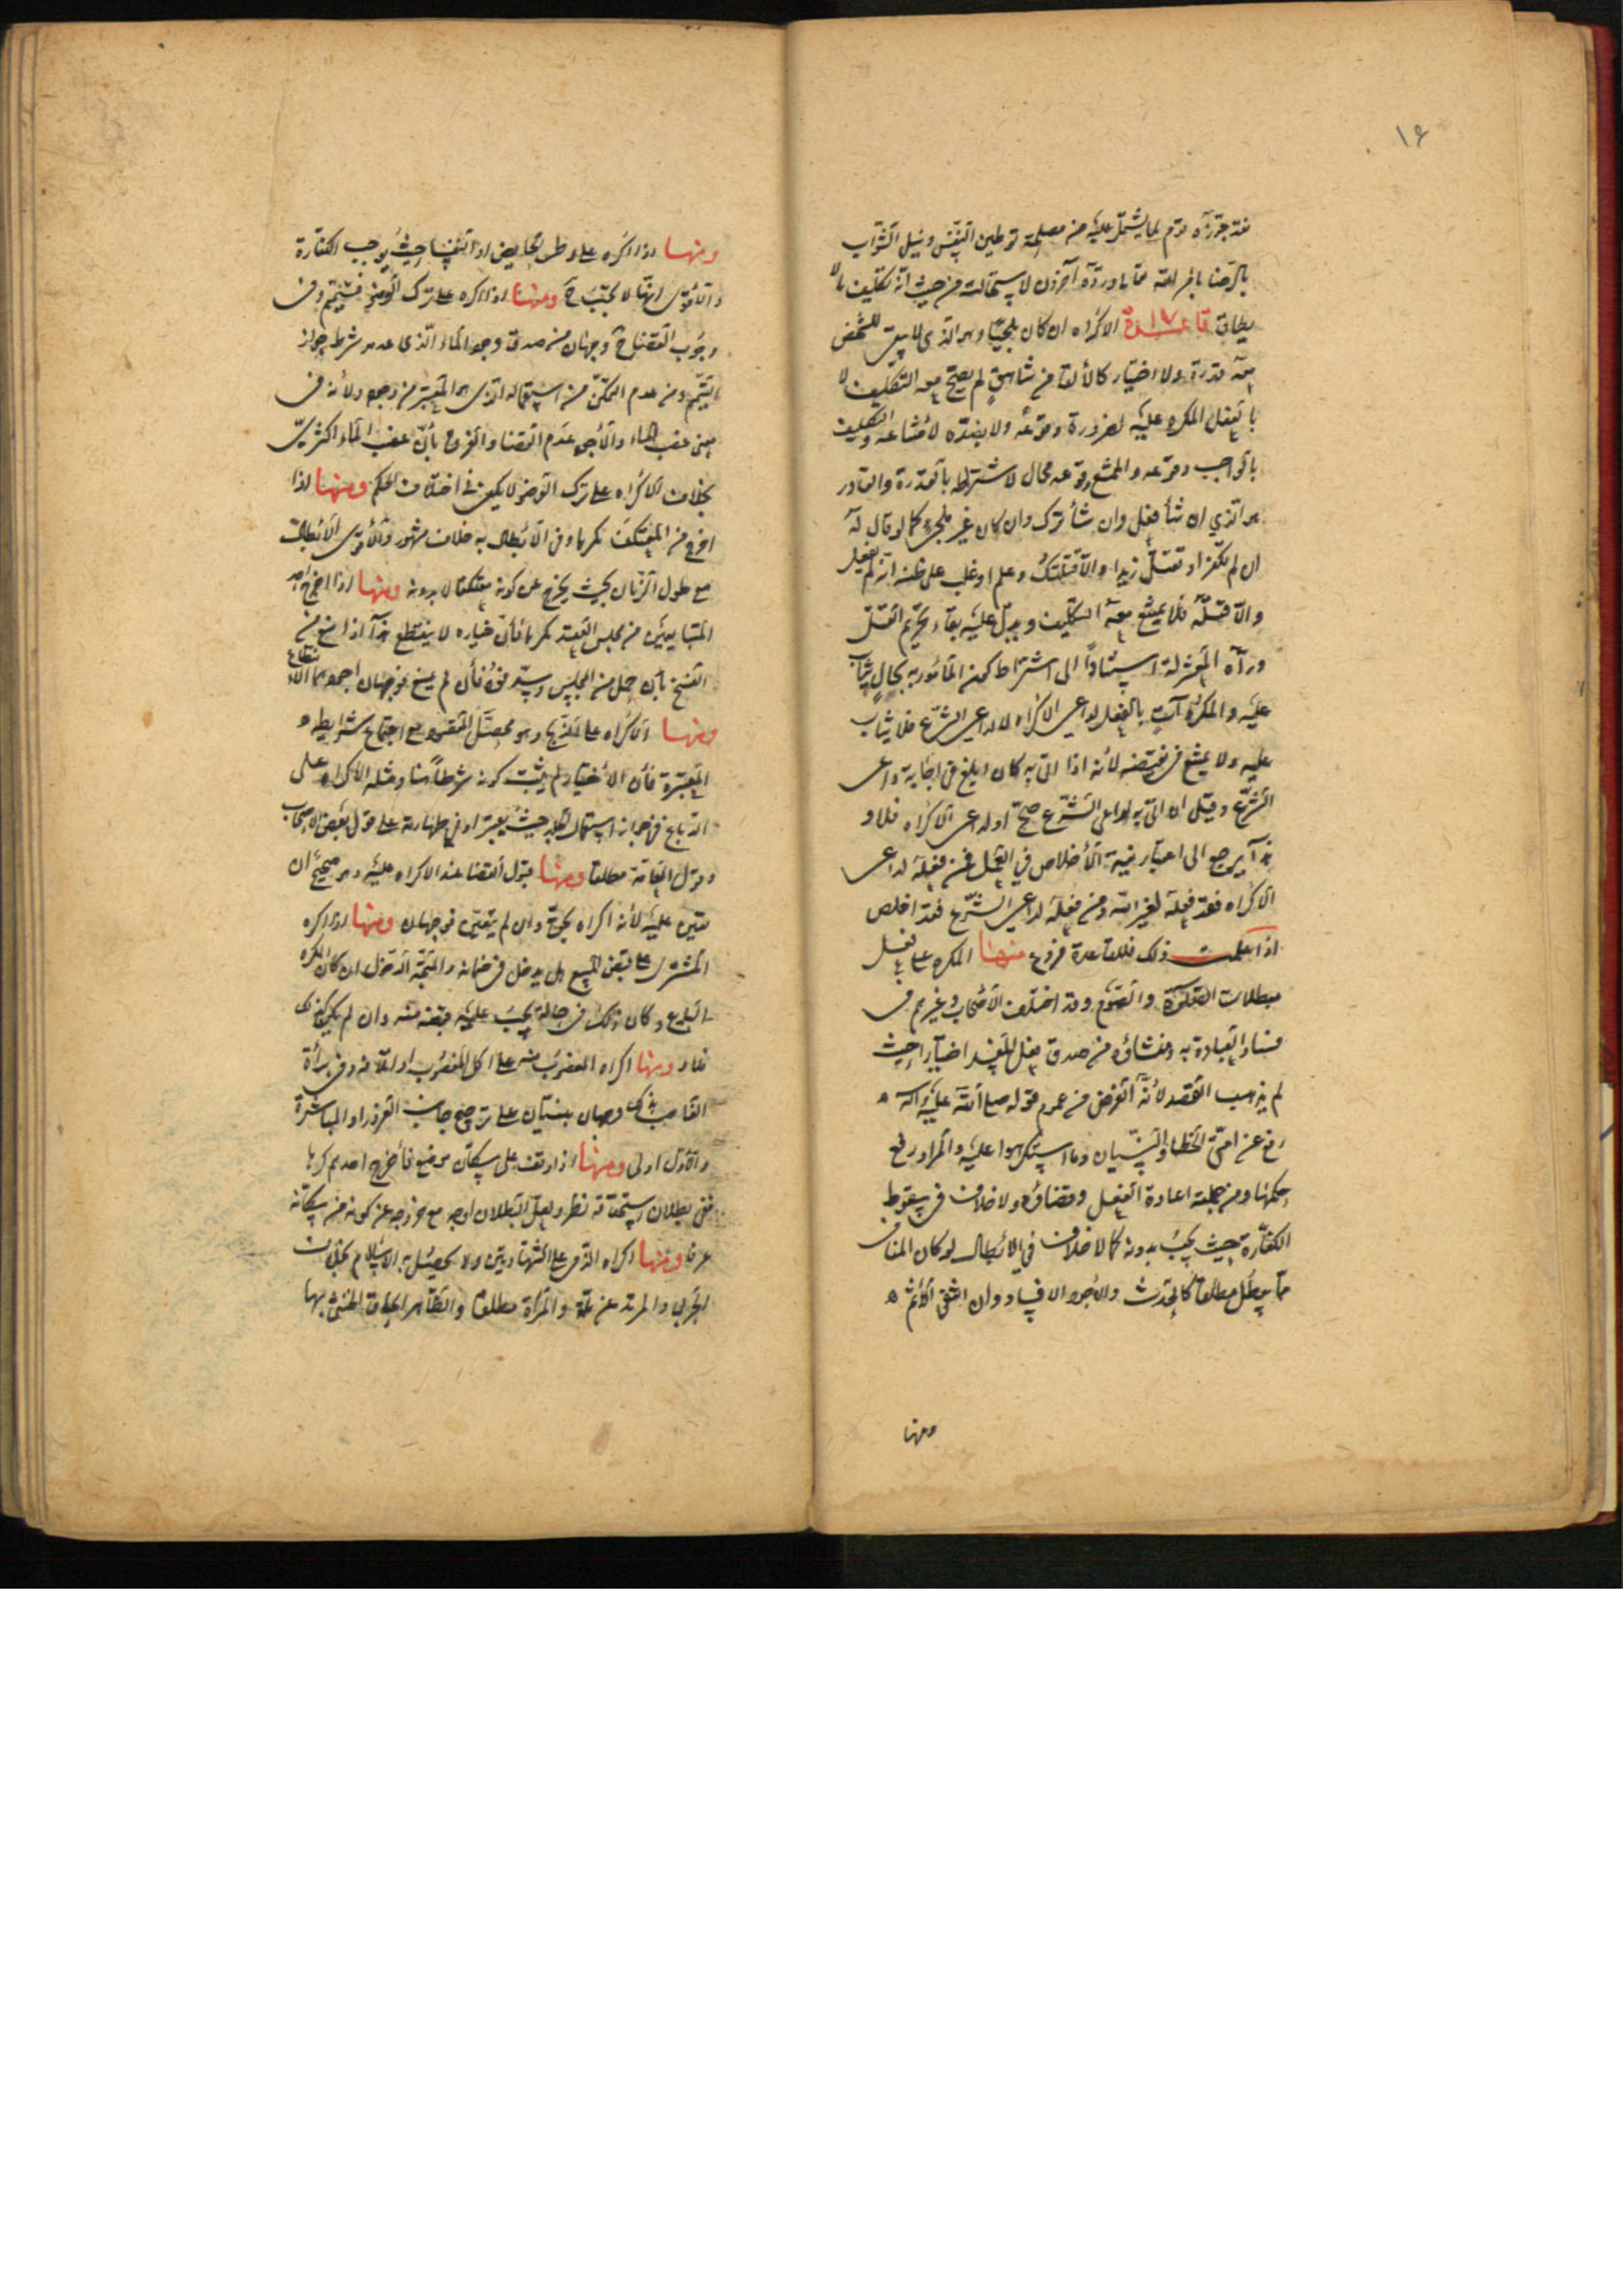 ١٦
فقد جوّزه قوم لما يشتمل عليه من مصلحة توطين النفس ونيل الثواب
بالرضا بامر الله تعالى ورده آخرون لاستحالته من حيث انه تكليف بما لا
يطاق قاعدة ١٧ الاكراه ان كان ملجئا وهو الذي لا يبقى للشخص
معه قدرة ولا اختيار كالألقاء من شاهق لم يصح معه التكليف لا
بالفعل المكره عليه لضرورة وقوعه ولا بضده لامتناعه والتكليف
بالواجب وقوعه والممتنع وقوعه محال لاشتراطه بالقدرة والقادر
هو الذي ان شأ فعل وان شأ ترك وان كان غير ملجئ كما لو قال له
ان لم تكفر او تقتل زيدا والا قتلتك وعلم او غلب على ظنه انه ان لم يفعل
والا قتله فلا يمتنع معه التكليف ويدل عليه بقاء تحريم القتل
ورآه المعتزلة استنادا الى اشتراط كون المأمور به بحال يثاب
عليه والمكره آت بالفعل لداعي الاكراه لا لداعي الشرع فلا يثاب
عليه ولا يمتنع في نقيضه لأنه اذا اتى به كان ابلغ في اجابة داعي
الشرع وقيل ان اتى به لداعي الشرع صح او لداعي الاكراه فلا و
هذا يرجع الى اعتبار نية الأخلاص في العمل فمن فعله لداعي
الاكراه فقد فعله لغير الله ومن فعله لداعي الشرع فقد اخلص
اذا علمت ذلك فللقاعدة فروع منها المكره على فعل
مبطلات الصلوة والصوم وقد اختلف الأصحاب وغيرهم في
فساد العبادة به ومنشاؤه من صدق فعل المفسد اختيارا حيث
لم يذهب القصد لأنه الفرض من عموم قوله صلى الله عليه وآله
رفع عن امتي الخطا والنسيان وما استكرهوا عليه والمراد رفع
حكمها ومن جملته اعادة الفعل وقضاؤه ولا خلاف في سقوط
الكفارة حيث يجب بدونه كما لا خلاف في الابطال لو كان المنافي
مما يبطل مطلقا كالحدث والأجود الافساد وان انتفى الأثم
ومنها
ومنها اذا اكره على وطء الحايض او النفسا حيث يوجب الكفارة
والأقوى انها لا تجب ح ومنها اذا اكره على ترك الوضو فتيمم وفي
وجوب القضاء ح وجهان من صدق وجود الماء الذي عدمه شرط جواز
التيمم ومن عدم التمكن من استعماله الذي هو المعتبر من وجوده ولأنه في
معنى غصب الماء والأجود عدم القضا والفرق بأن غصب الماء اكثري
بخلاف الاكراه على ترك الوضو لا يكفي في اختلاف الحكم ومنها اذا
اخرج من المعتكف مكرها وفي الأبطال به خلاف مشهور والأقوى الأبطال
مع طول الزمان بحيث يخرج عن كونه معتكفا لا بدونه ومنها اذا اخرج احد
المتبايعين من مجلس العقد مكرها فأن خياره لا ينقطع هذا اذا منع من
الفسخ بأن حمل من المجلس وسد فوه فأن لم يمنع فوجهان اجودهما الانقطاع
ومنها الاكراه على الذبح وهو محصل المقصود مع اجتماع شرايطه
المعتبرة فأن الأختيار لم يثبت كونه شرطا هنا ومثله الأكراه على
الدباغ في جواز استعمال الجلد حيث يعتبر او في طهارته على قول بعض الأصحاب
وقول العامة مطلقا ومنها قبول القضا عند الاكراه عليه وهو صحيح ان
تعين عليه لأنه اكراه بحق وان لم يتعين فوجهان ومنها اذا اكره
المشتري على قبض المبيع هل يدخل في ضمانه والمتجه الدخول ان كان المكره
البايع وكان ذلك في حالة يجب عليه قبضه منه وان لم يكن كذلك
فلا ومنها اكراه المغصوب منه على اكل المغصوب او اتلافه وفي براءة
الغاصب بذلك وجهان مبنيان على ترجيح جانب الغرور او المباشرة
والأول اولى ومنها اذا وقف على سكان موضع فأخرج احدهم كرها
ففي بطلان استحقاقه نظر ولعل البطلان اوجه مع خروجه عن كونه من سكانه
عرفا ومنها اكراه الذمي على الشهادتين ولا يحصل به الاسلام بخلاف
الحربي والمرتد عن ملة والمرأة مطلقا والظاهر الحاق الخنثى بها